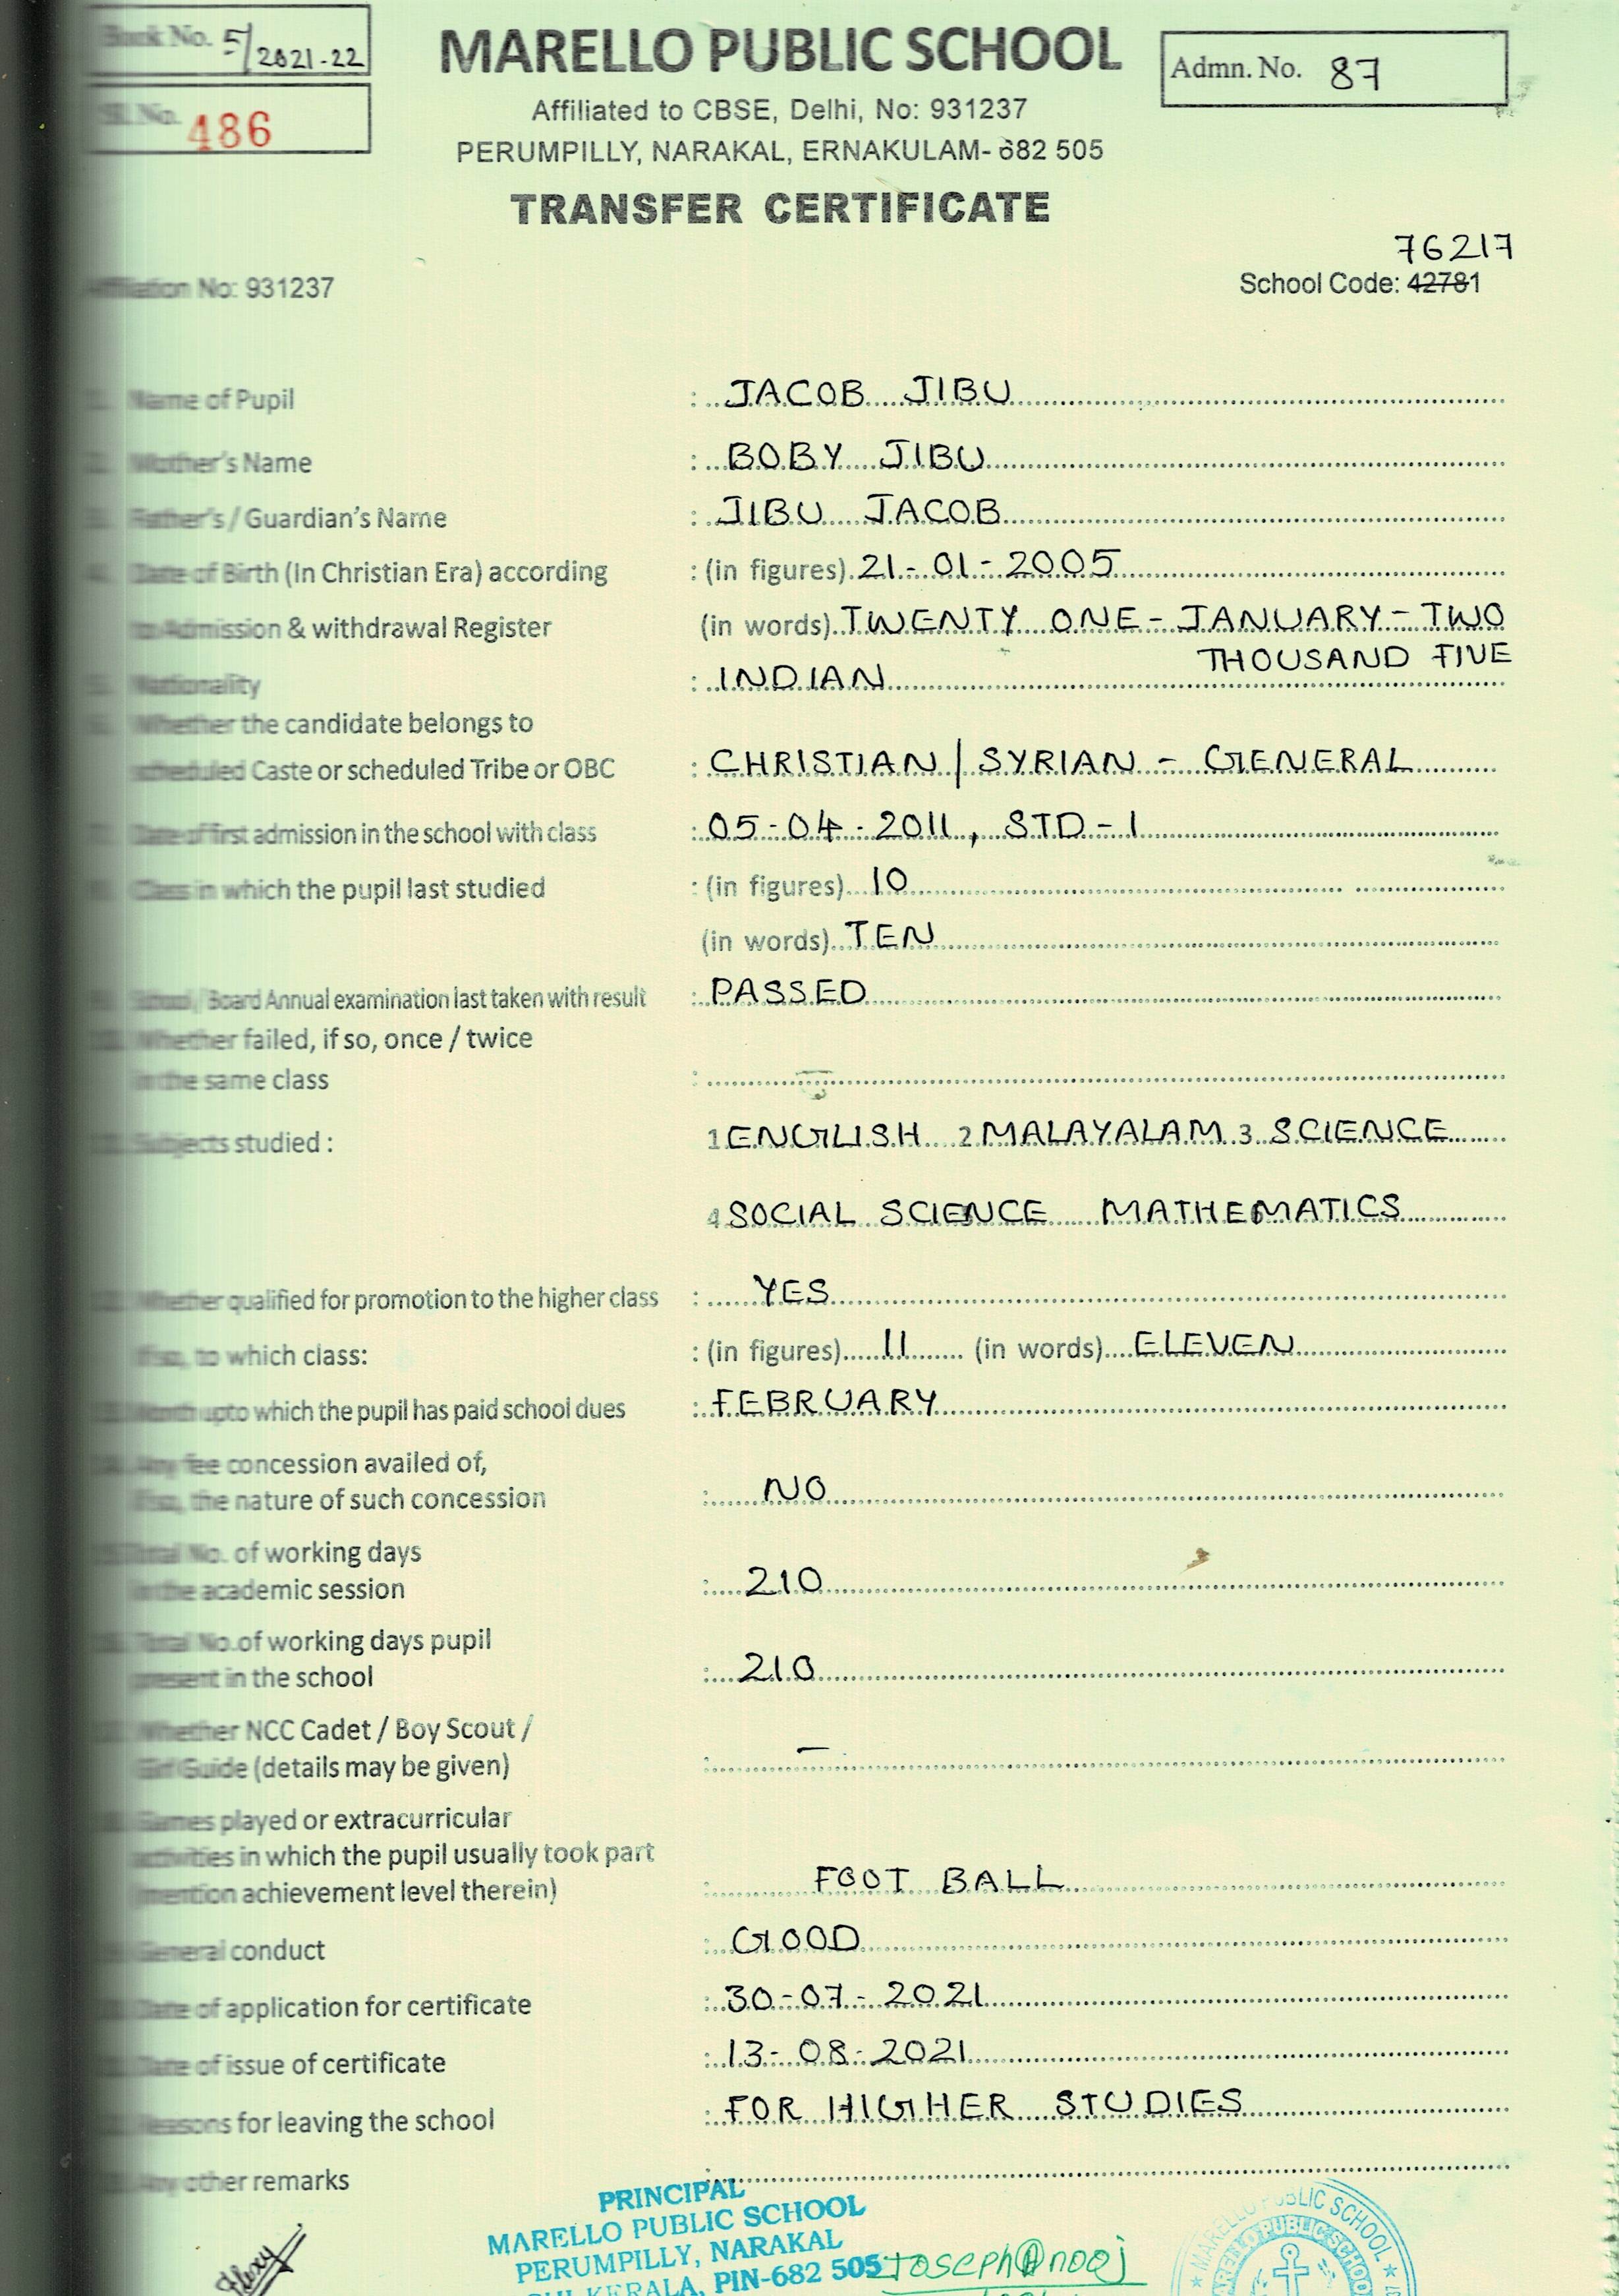 Book No. 5/2021-22
Sl. No. 486
MARELLO PUBLIC SCHOOL
Admn. No. 87
Affiliated to CBSE, Delhi, No: 931237
PERUMPILLY, NARAKAL, ERNAKULAM- 682 505
TRANSFER CERTIFICATE
76217
Affiliation No: 931237 School Code: 42781
Name of Pupil : JACOB JIBU
Mother's Name : BOBY JIBU
Father's / Guardian's Name : JIBU JACOB
Date of Birth (In Christian Era) according : (in figures) 21-01-2005
to Admission & withdrawal Register (in words) TWENTY ONE - JANUARY - TWO
THOUSAND FIVE
Nationality : INDIAN
Whether the candidate belongs to
scheduled Caste or scheduled Tribe or OBC : CHRISTIAN | SYRIAN - GENERAL
Date of first admission in the school with class : 05-04-2011, STD-1
Class in which the pupil last studied : (in figures) 10
(in words) TEN
School / Board Annual examination last taken with result : PASSED
Whether failed, if so, once / twice
in the same class :
Subjects studied : 1 ENGLISH 2 MALAYALAM 3 SCIENCE
4 SOCIAL SCIENCE MATHEMATICS
Whether qualified for promotion to the higher class : YES
If so, to which class: : (in figures) 11 (in words) ELEVEN
Month upto which the pupil has paid school dues : FEBRUARY
Any fee concession availed of,
if so, the nature of such concession : NO
Total No. of working days
in the academic session : 210
Total No. of working days pupil
present in the school : 210
Whether NCC Cadet / Boy Scout /
Girl Guide (details may be given) : —
Games played or extracurricular
activities in which the pupil usually took part
(mention achievement level therein) : FOOT BALL
General conduct : GOOD
Date of application for certificate : 30-07-2021
Date of issue of certificate : 13-08-2021
Reasons for leaving the school : FOR HIGHER STUDIES
Any other remarks :
PRINCIPAL
MARELLO PUBLIC SCHOOL
PERUMPILLY, NARAKAL
KERALA, PIN-682 505
MARELLO PUBLIC SCHOOL